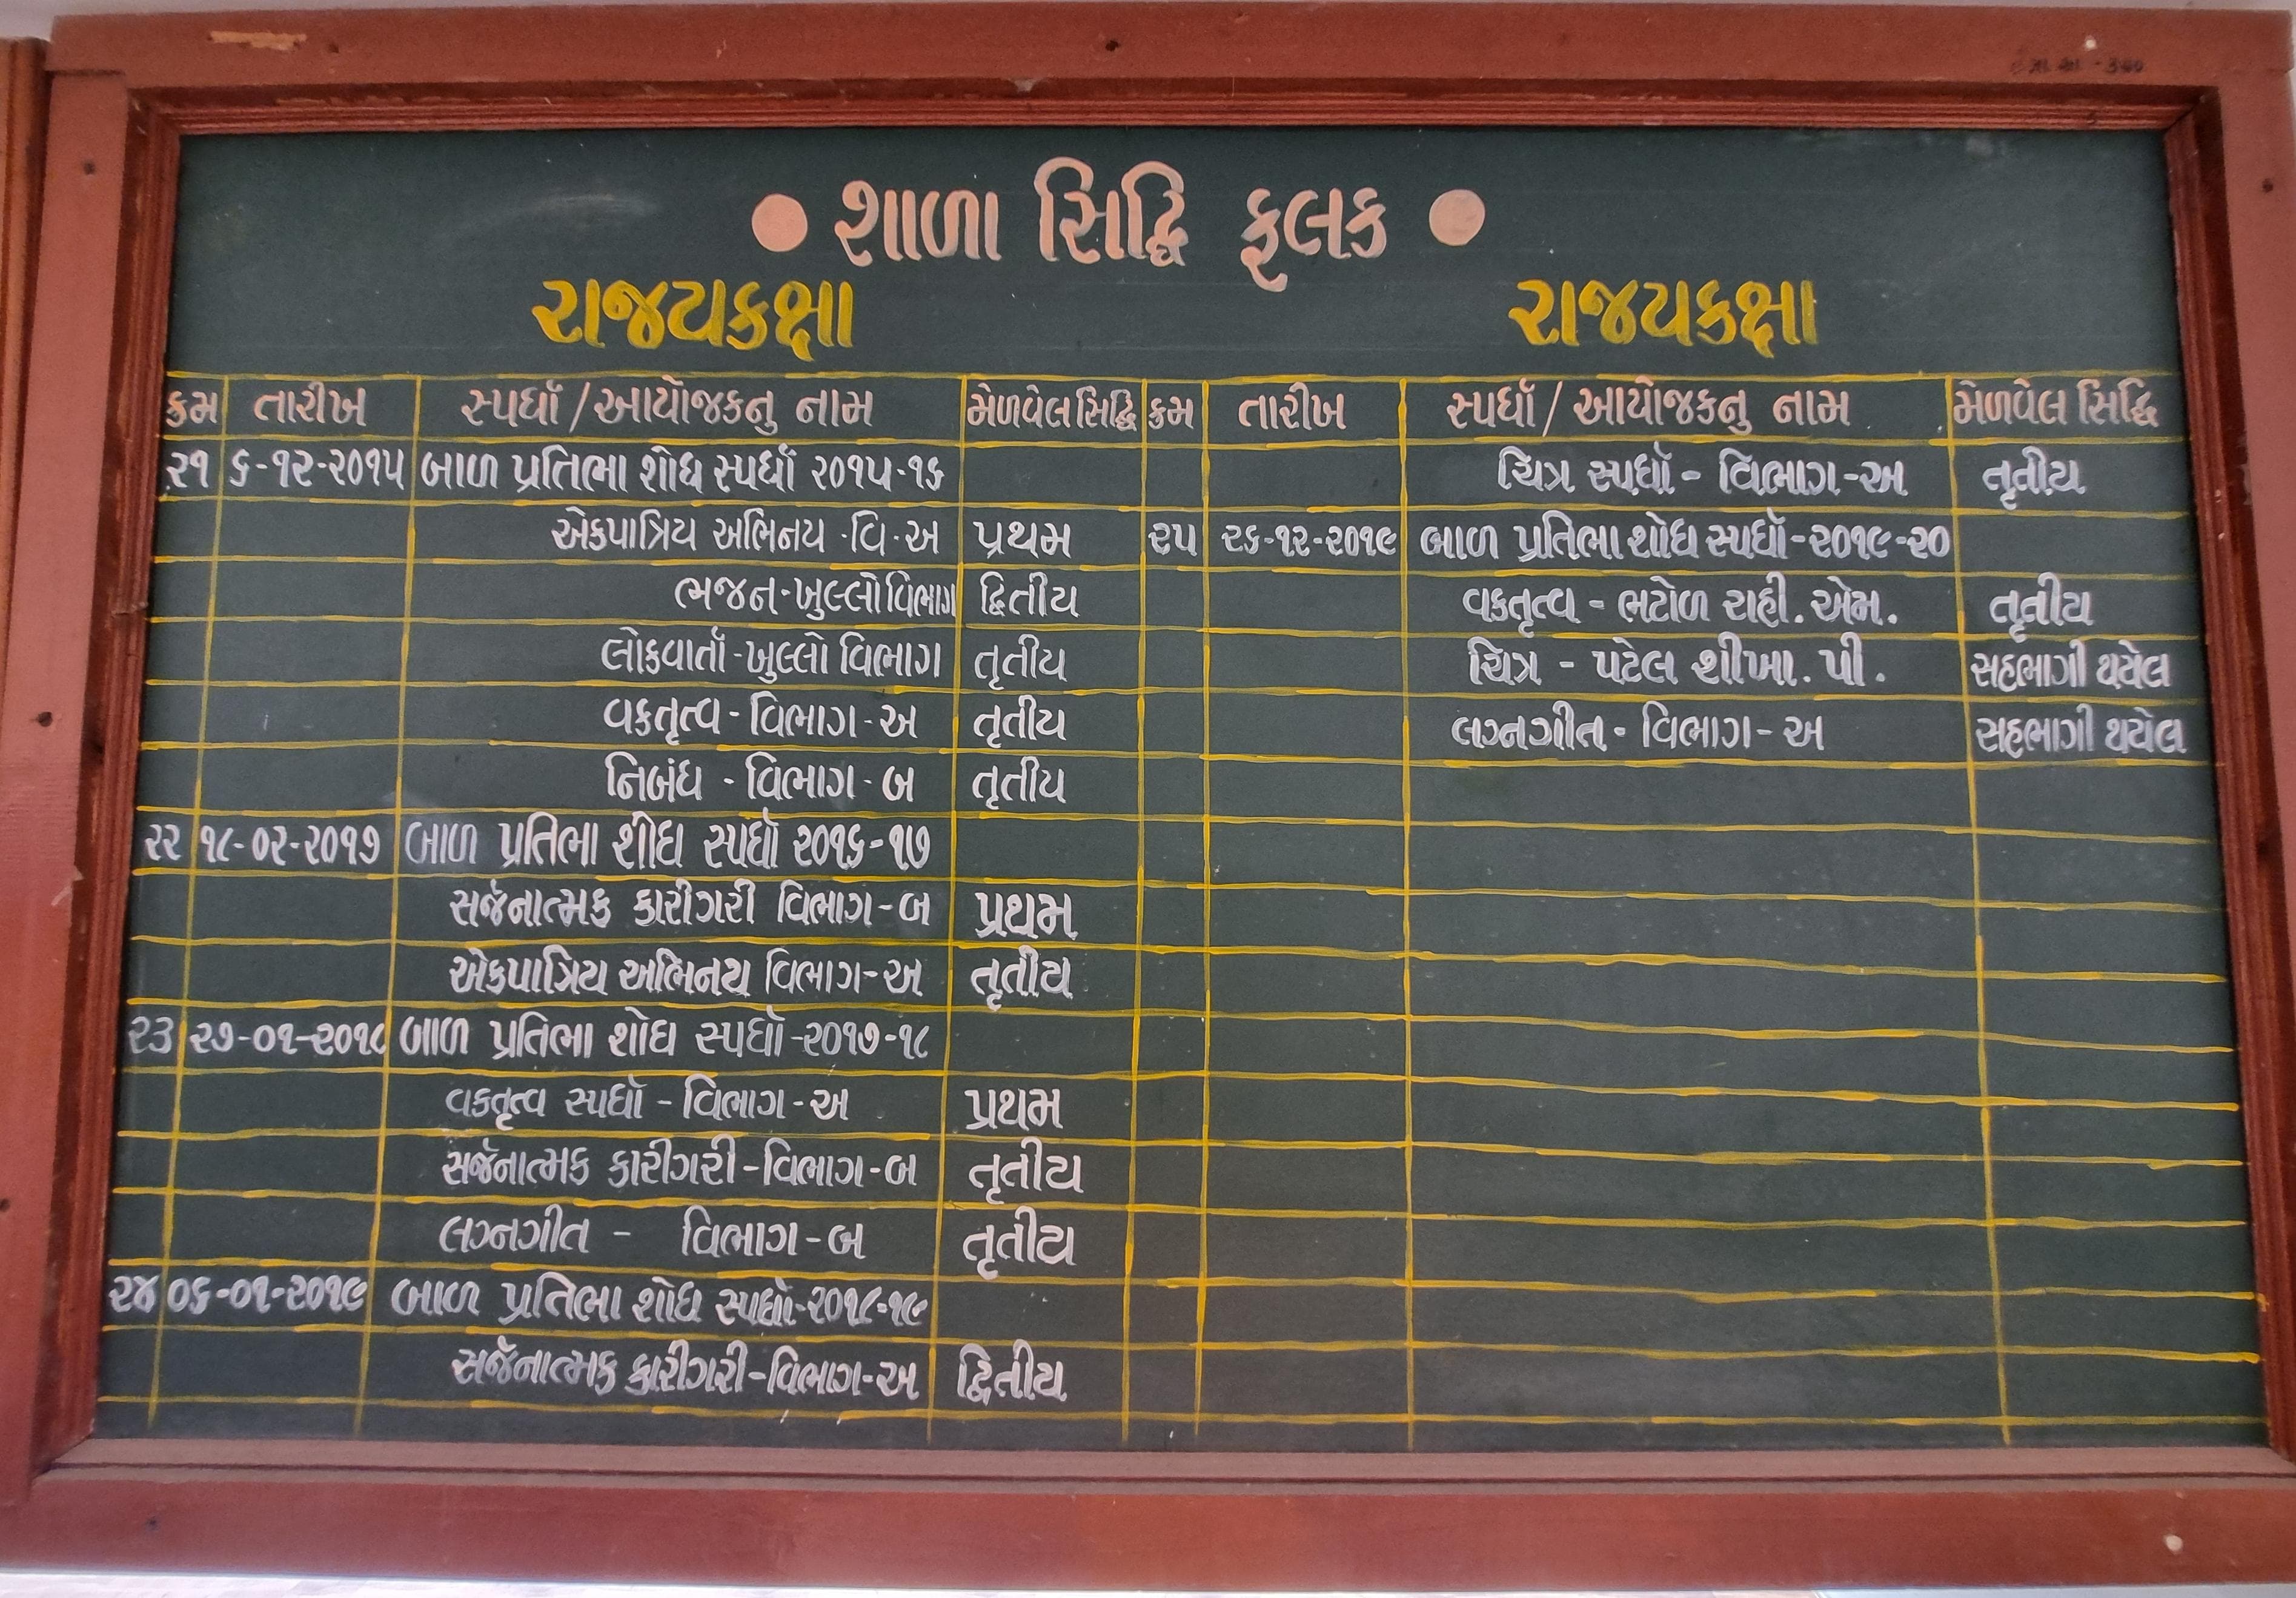 શાળા સિદ્ધિ ફલક
રાજ્યકક્ષા
ક્રમ તારીખ સ્પર્ધા/આયોજકનુ નામ મેળવેલ સિદ્ધિ
૨૧ ૬-૧૨-૨૦૧૫ બાળ પ્રતિભા શોધ સ્પર્ધા ૨૦૧૫-૧૬
એકપાત્રિય અભિનય -વિ-અ પ્રથમ
ભજન-ખુલ્લો વિભાગ દ્વિતીય
લોકવાર્તા-ખુલ્લો વિભાગ તૃતીય
વકતૃત્વ-વિભાગ-અ તૃતીય
નિબંધ - વિભાગ-બ તૃતીય
૨૨ ૧૮-૦૨-૨૦૧૭ બાળ પ્રતિભા શોધ સ્પર્ધા ૨૦૧૬-૧૭
સર્જનાત્મક કારીગરી વિભાગ-બ પ્રથમ
એકપાત્રિય અભિનય વિભાગ-અ તૃતીય
૨૩ ૨૭-૦૧-૨૦૧૮ બાળ પ્રતિભા શોધ સ્પર્ધા-૨૦૧૭-૧૮
વકતૃત્વ સ્પર્ધા - વિભાગ-અ પ્રથમ
સર્જનાત્મક કારીગરી-વિભાગ-બ તૃતીય
લગ્નગીત - વિભાગ-બ તૃતીય
૨૪ ૦૬-૦૧-૨૦૧૯ બાળ પ્રતિભા શોધ સ્પર્ધા-૨૦૧૮-૧૯
સર્જનાત્મક કારીગરી-વિભાગ-અ દ્વિતીય
રાજ્યકક્ષા
ક્રમ તારીખ સ્પર્ધા/આયોજકનુ નામ મેળવેલ સિદ્ધિ
ચિત્ર સ્પર્ધા - વિભાગ-અ તૃતીય
૨૫ ૨૬-૧૨-૨૦૧૯ બાળ પ્રતિભા શોધ સ્પર્ધા-૨૦૧૯-૨૦
વકતૃત્વ - ભટોળ રાહી. એમ. તૃતીય
ચિત્ર - પટેલ શીખા. પી. સહભાગી થયેલ
લગ્નગીત - વિભાગ-અ સહભાગી થયેલ